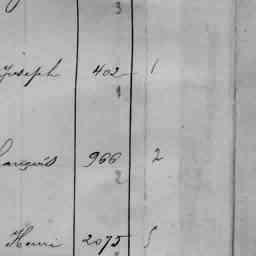 3
Joseph 402 1
1
966 2
2
Henri 2075 5